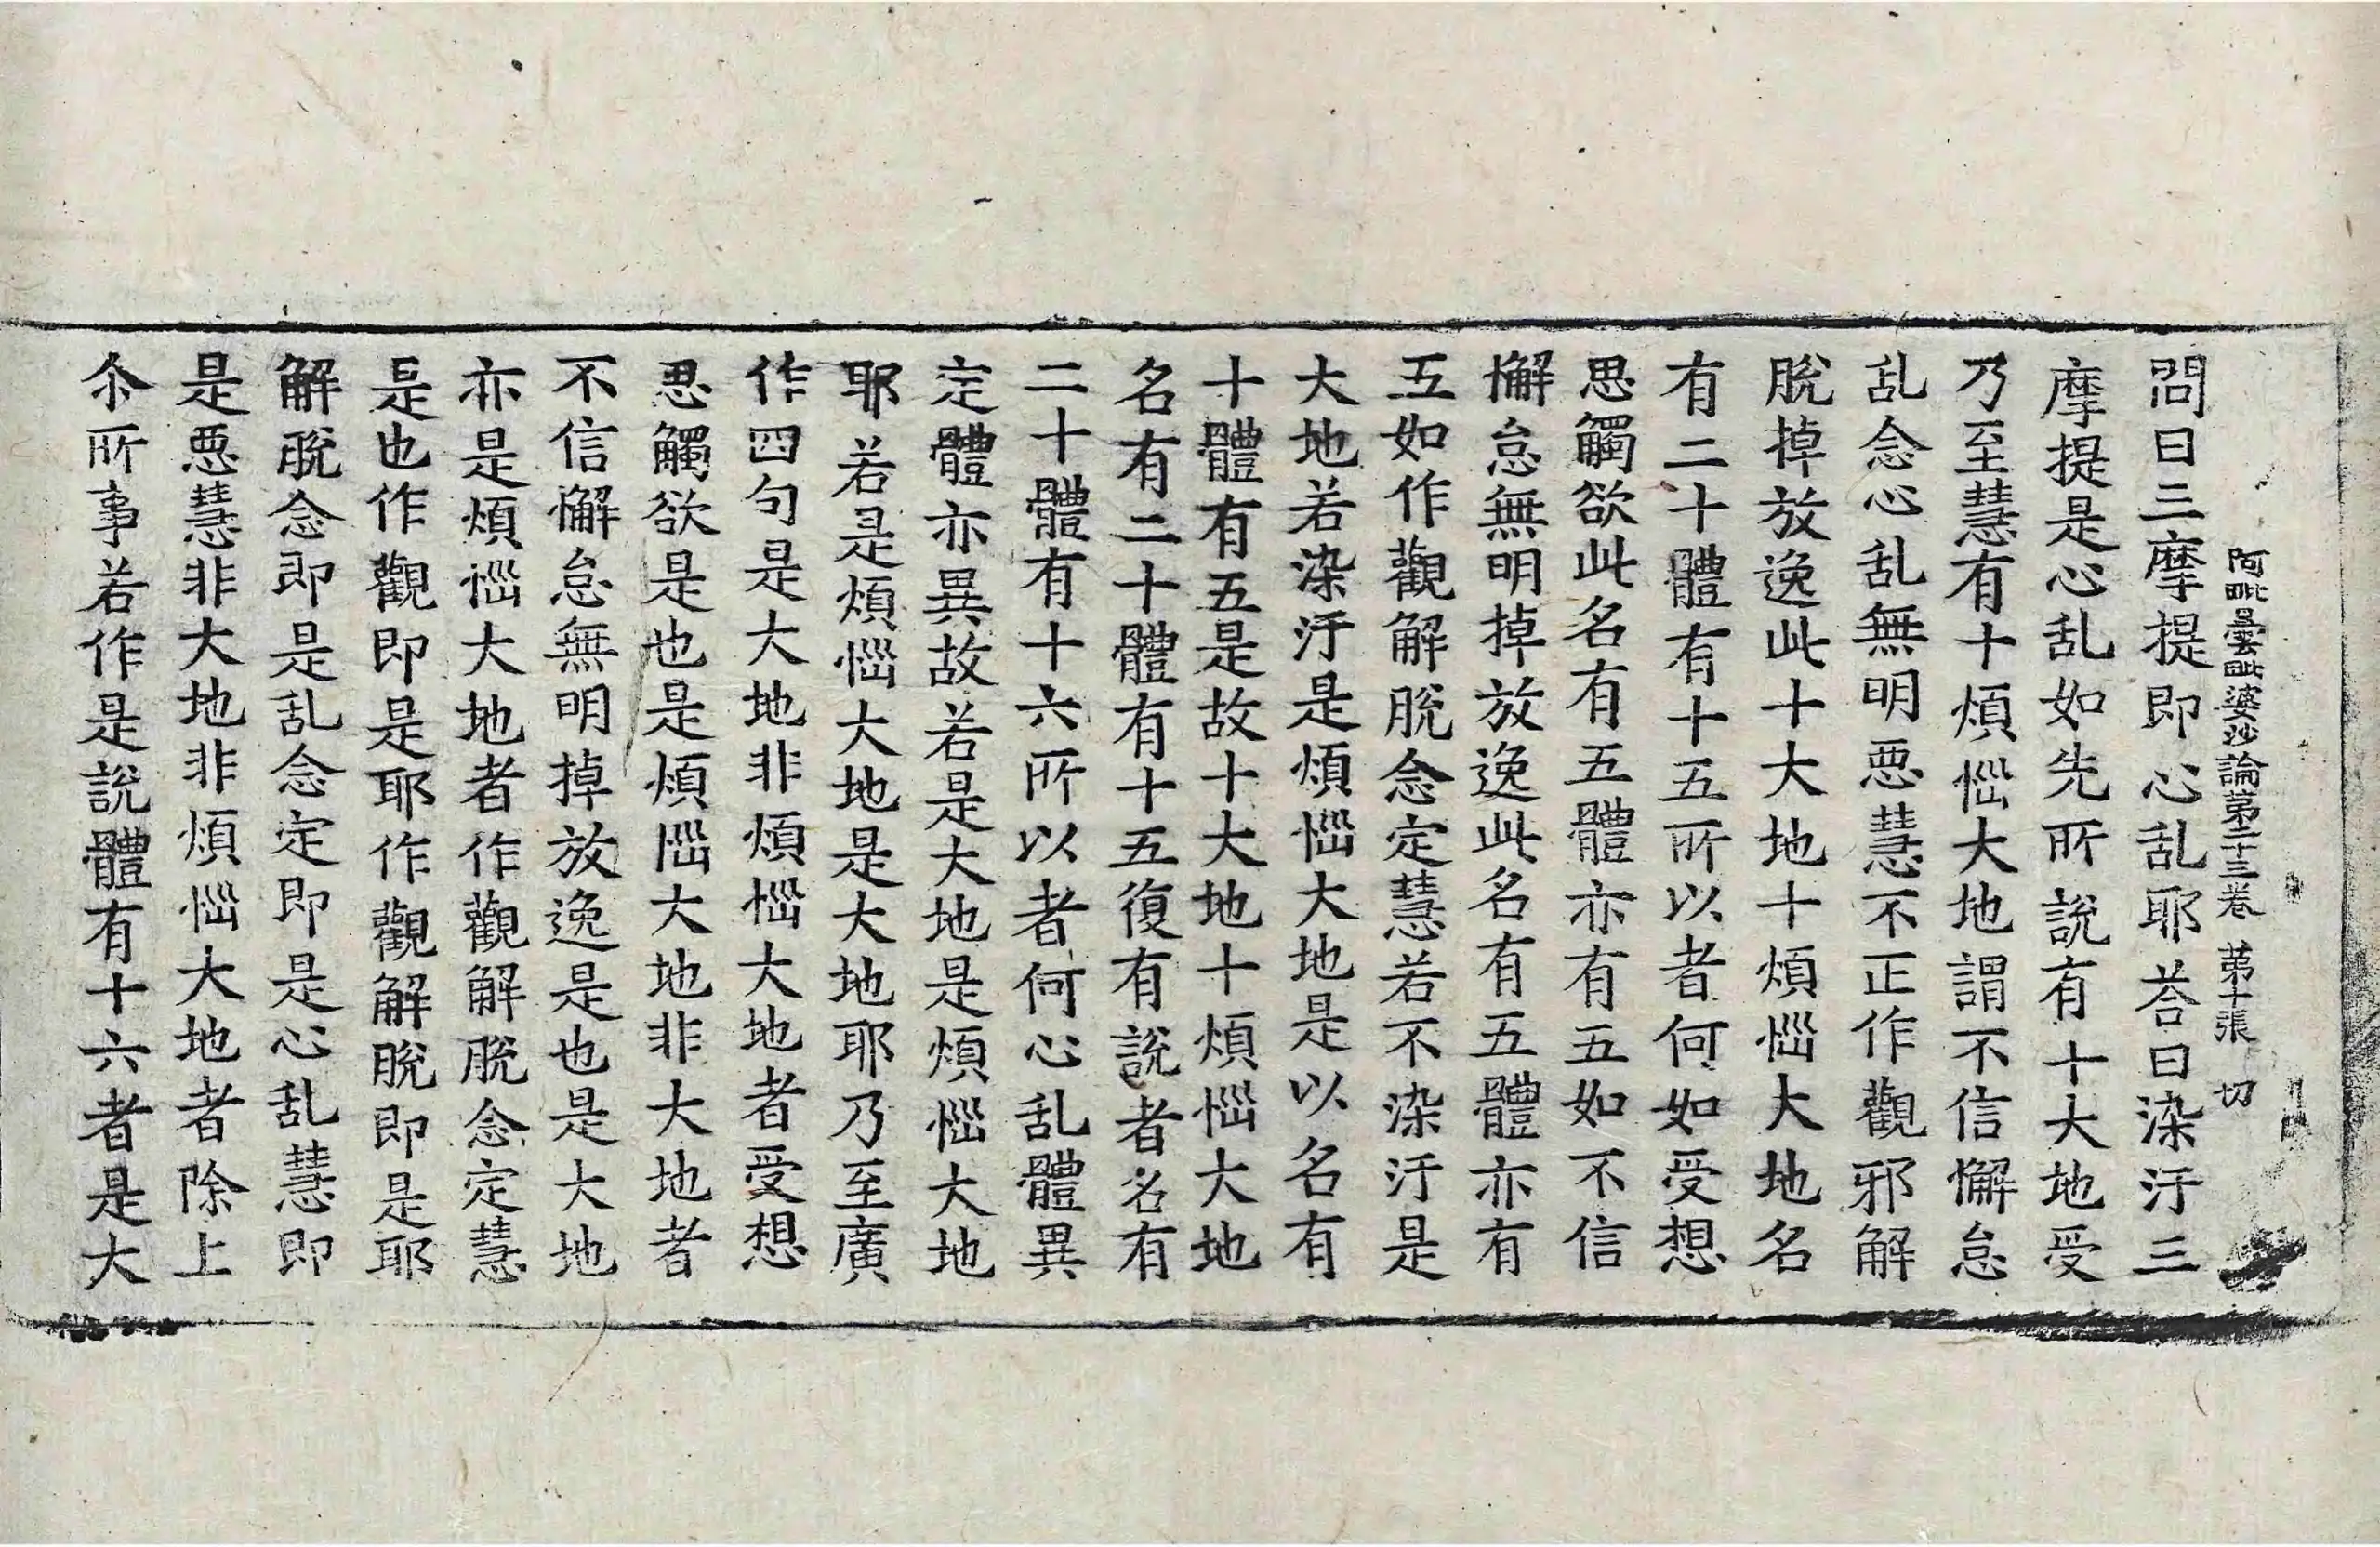 阿毗曇毗婆沙論第二十三卷　第十張　切
問曰三摩提即心乱耶荅曰染汙三
摩提是心乱如先所說有十大地受
乃至慧有十煩惱大地謂不信懈怠
乱念心乱無明悪慧不正作觀邪解
脫掉放逸此十大地十煩惱大地名
有二十體有十五所以者何如受想
思觸欲此名有五體亦有五如不信
懈怠無明掉放逸此名有五體亦有
五如作觀解脫念定慧若不染汙是
大地若染汙是煩惱大地是以名有
十體有五是故十大地十煩惱大地
名有二十體有十五復有說者名有
二十體有十六所以者何心乱體異
定體亦異故若是大地是煩惱大地
耶若是煩惱大地是大地耶乃至廣
作四句是大地非煩惱大地者受想
思觸欲是也是煩惱大地非大地者
不信懈怠無明掉放逸是也是大地
亦是煩惱大地者作觀解脫念定慧
是也作觀即是耶作觀解脫即是耶
解脫念即是乱念定即是心乱慧即
是悪慧非大地非煩惱大地者除上
尒所事若作是說體有十六者是大